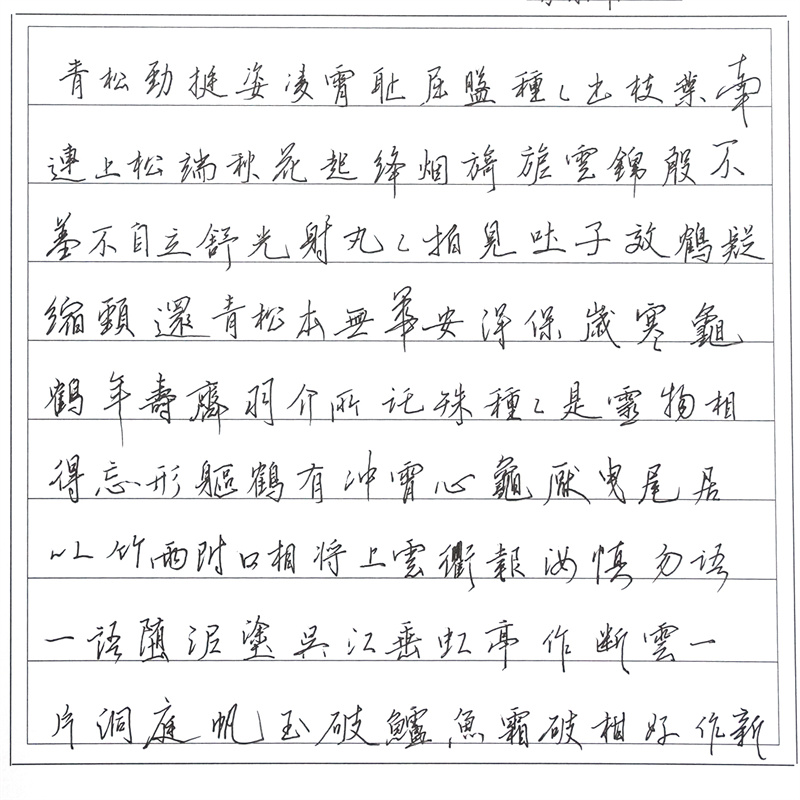 青松勁挺姿凌霄耻屈盤種々出枝葉牽
連上松端秋花起絳烟旖旎雲錦殷不
羞不自立舒光射丸々柏見吐子效鶴疑
縮頸還青松本無華安得保歲寒龜
鶴年壽齊羽介所託殊種々是靈物相
得忘形軀鶴有冲霄心龜厭曳尾居
以竹兩附口相將上雲衢報汝慎勿語
一語墮泥塗吳江垂虹亭作斷雲一
片洞庭帆玉破鱸魚霜破柑好作新